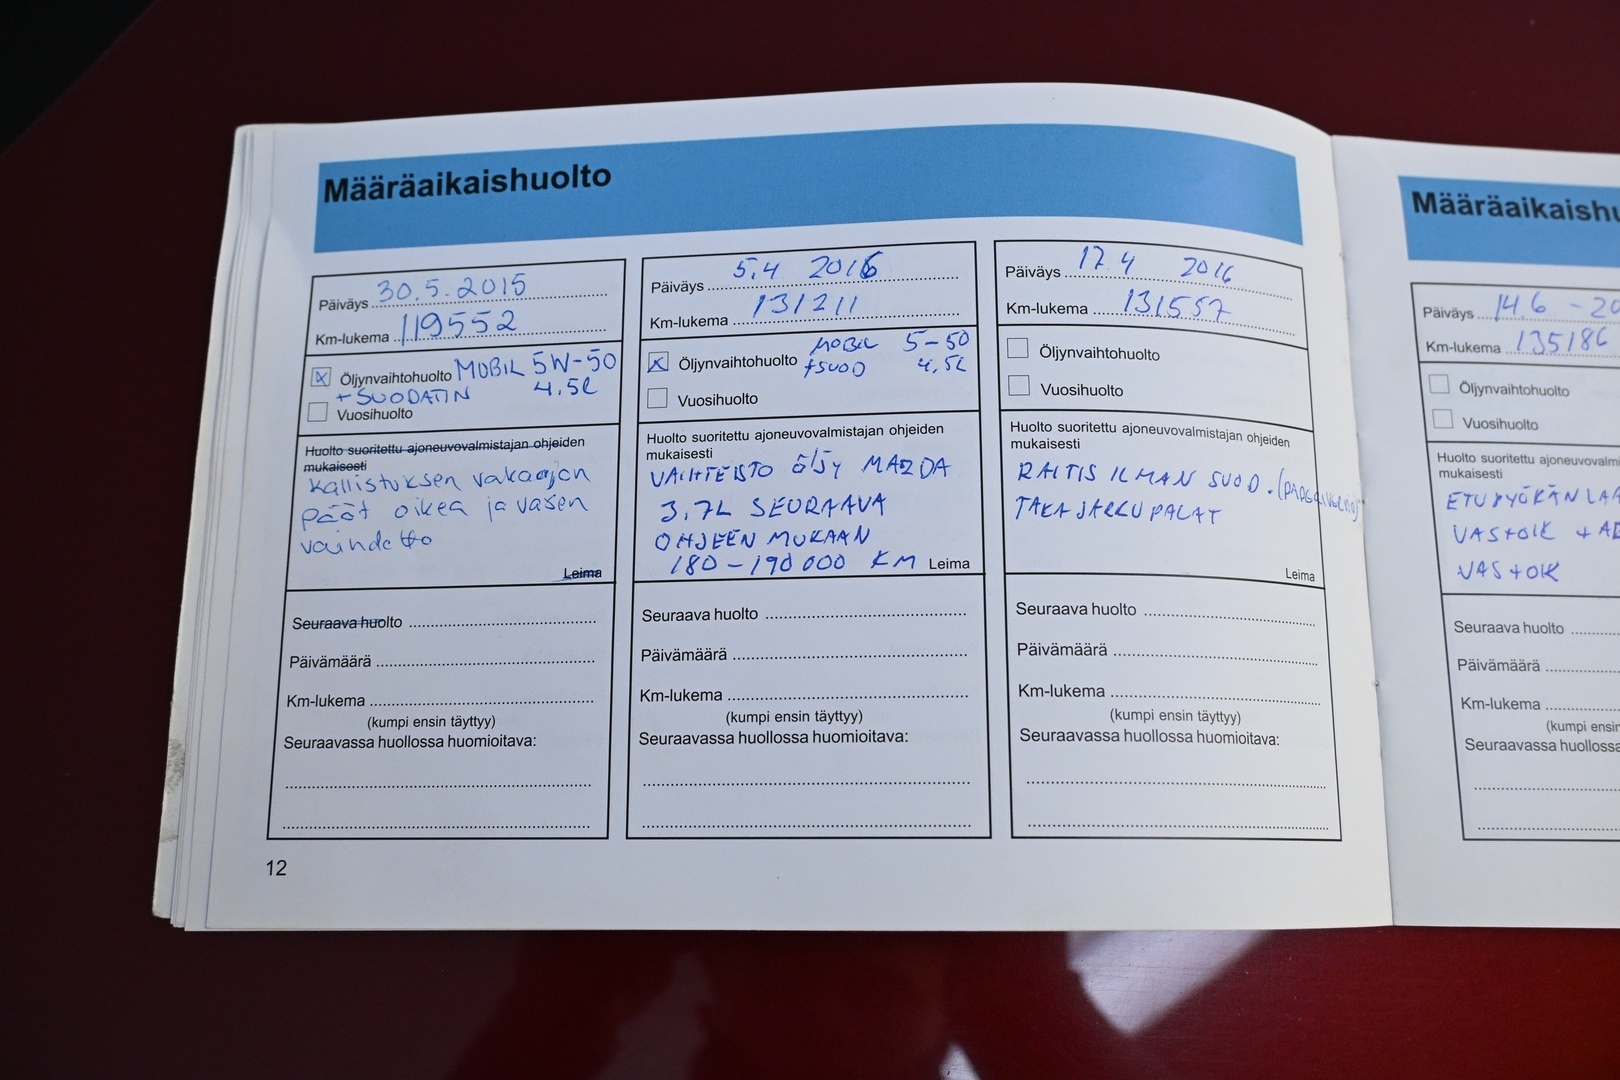 Määräaikaishuolto
Päiväys 30.5.2015
Km-lukema 119552
Öljynvaihtohuolto MOBIL 5W-50
+SUODATIN 4.5L
Vuosihuolto
Huolto suoritettu ajoneuvovalmistajan ohjeiden
mukaisesti
kallistuksen vakaajan
päät oikea ja vasen
vaihdettu
Leima
Seuraava huolto
Päivämäärä
Km-lukema
(kumpi ensin täyttyy)
Seuraavassa huollossa huomioitava:
12
Päiväys 5.4 2016
Km-lukema 131211
Öljynvaihtohuolto MOBIL 5-50
+SUOD 4,5L
Vuosihuolto
Huolto suoritettu ajoneuvovalmistajan ohjeiden
mukaisesti
VAIHTEISTO ÖLJY MAZDA
3,7L SEURAAVA
OHJEEN MUKAAN
180-190 000 KM Leima
Seuraava huolto
Päivämäärä
Km-lukema
(kumpi ensin täyttyy)
Seuraavassa huollossa huomioitava:
Päiväys 17.4 2016
Km-lukema 131557
Öljynvaihtohuolto
Vuosihuolto
Huolto suoritettu ajoneuvovalmistajan ohjeiden
mukaisesti
RAITIS ILMAN SUOD.
TAKA JARRUPALAT
Leima
Seuraava huolto
Päivämäärä
Km-lukema
(kumpi ensin täyttyy)
Seuraavassa huollossa huomioitava:
Määräaikaishu
Päiväys 14.6 -20
Km-lukema 135186
Öljynvaihtohuolto
Vuosihuolto
Huolto suoritettu ajoneuvovalmi
mukaisesti
ETUPYÖRÄN LAA
VAS+OIK +AB
VAS+OIK
Seuraava huolto
Päivämäärä
Km-lukema
(kumpi ensin
Seuraavassa huollossa